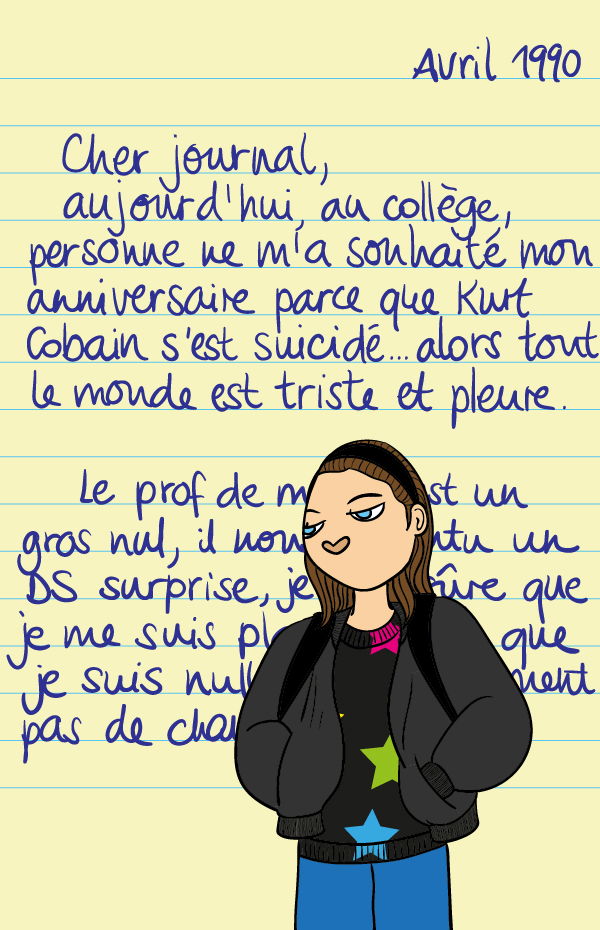 Avril 1990
Cher journal,
aujourd'hui, au collège,
personne ne m'a souhaité mon
anniversaire parce que Kurt
Cobain s'est suicidé... alors tout
le monde est triste et pleure.
Le prof de st un
gros nul, il un
DS surprise, je que
je me suis que
je suis
pas de